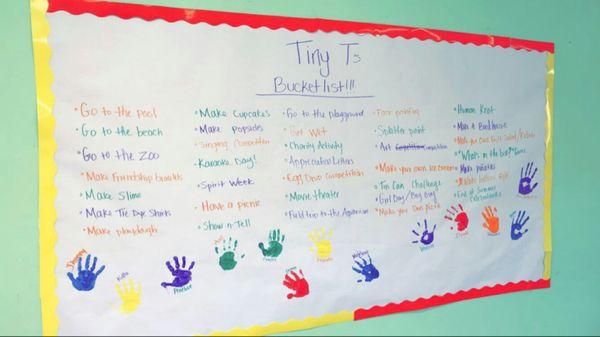 Tiny Ts
Bucketlist!!!
• Go to the pool
• Go to the beach
• Go to the zoo
• Make Friendship bracelets
• Make Slime
• Make Tie Dye Shirts
• Make playdough
• Make Cupcakes
• Make Popsicles
• Singing Competition
• Karaoke Day!
• Spirit Week
• Have a picnic
• Show n Tell
• Go to the playground
• Get Wet
• Charity Activity
• Appreciation Letters
• Egg Drop Competition
• Movie theater
• Field trip to the Aquarium
• Face painting
• Splatter paint
• Art Competition
• Make your own ice cream
• Tin Can Challenge
• Girl Day/Boy Day
• Make your own pizza
• Human Knot
• Make a Birdhouse
• Make your own Fruit Salad/
• Whats in the box? Game
• Make piñatas
• Water balloon fight
• End of Summer